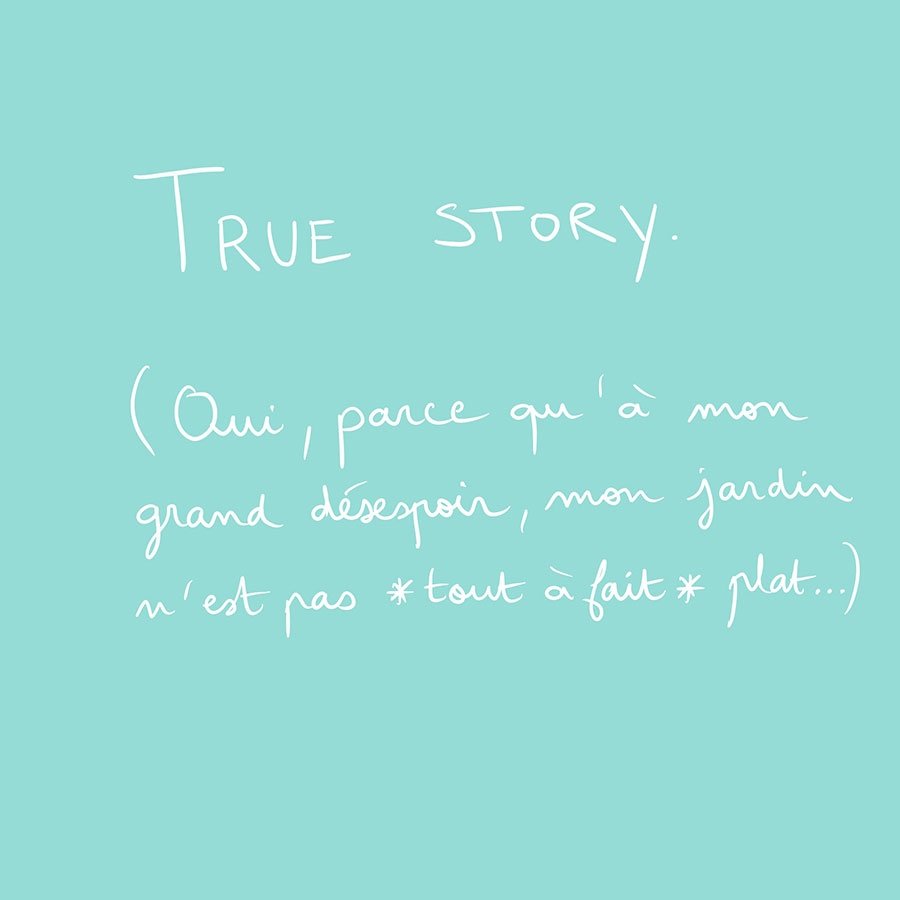 TRUE STORY.
(Oui, parce qu'à mon
grand désespoir, mon jardin
n'est pas *tout à fait* plat...)